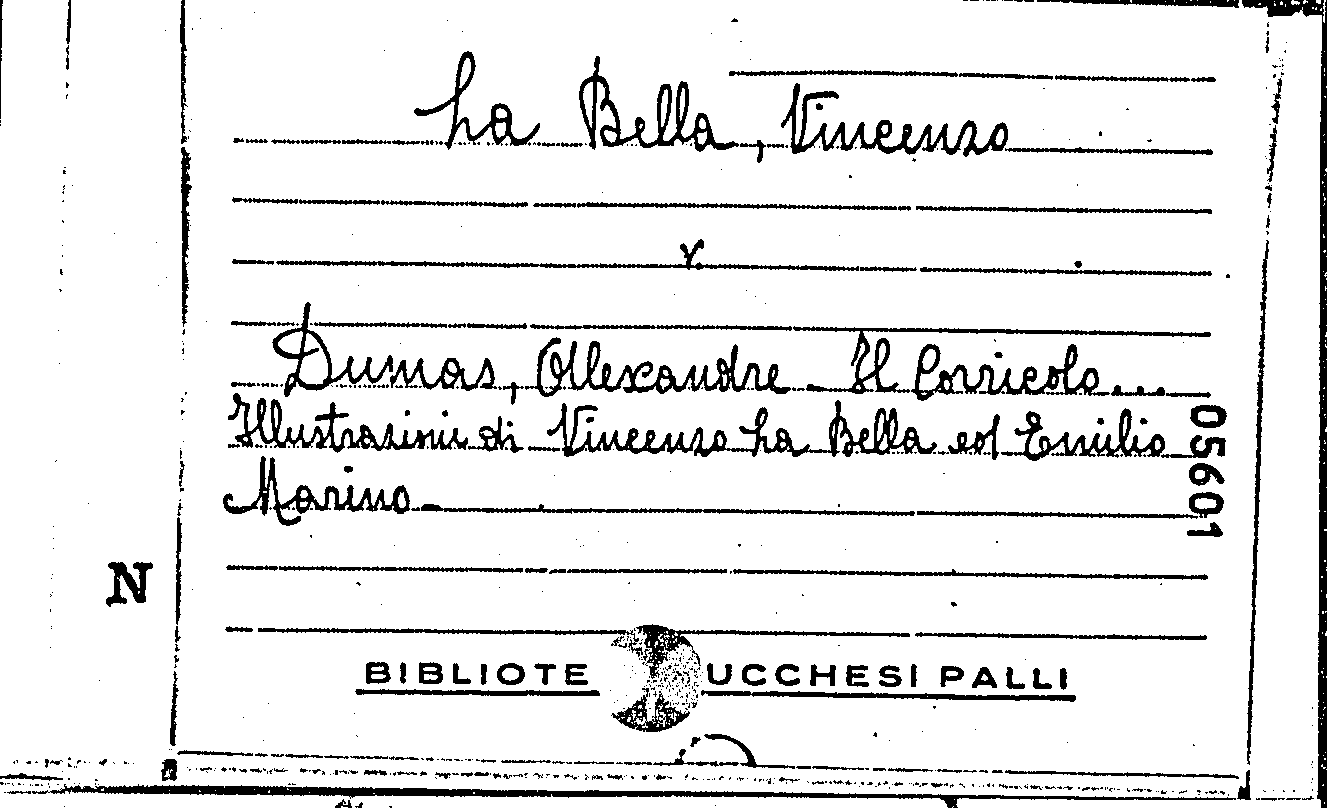 La Bella, Vincenzo
v.
Dumas, Allexandre - Il Corricolo...
Illustrazioni di Vincenzo La Bella ed Emilio
Marino -
05601
N
BIBLIOTE UCCHESI PALLI